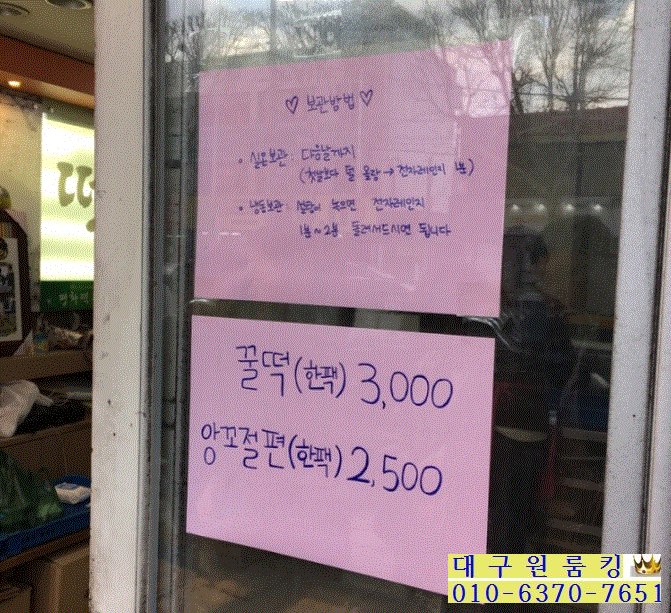 ♡ 보관방법 ♡
• 실온보관 : 다음날까지
(첫날보다 덜 몰랑 → 전자레인지 1분)
• 냉동보관 : 녹으면 전자레인지
1분~2분 돌려드시면 됩니다
꿀떡(한팩) 3,000
앙꼬절편(한팩) 2,500
떡
대구원룸킹
010-6370-7651